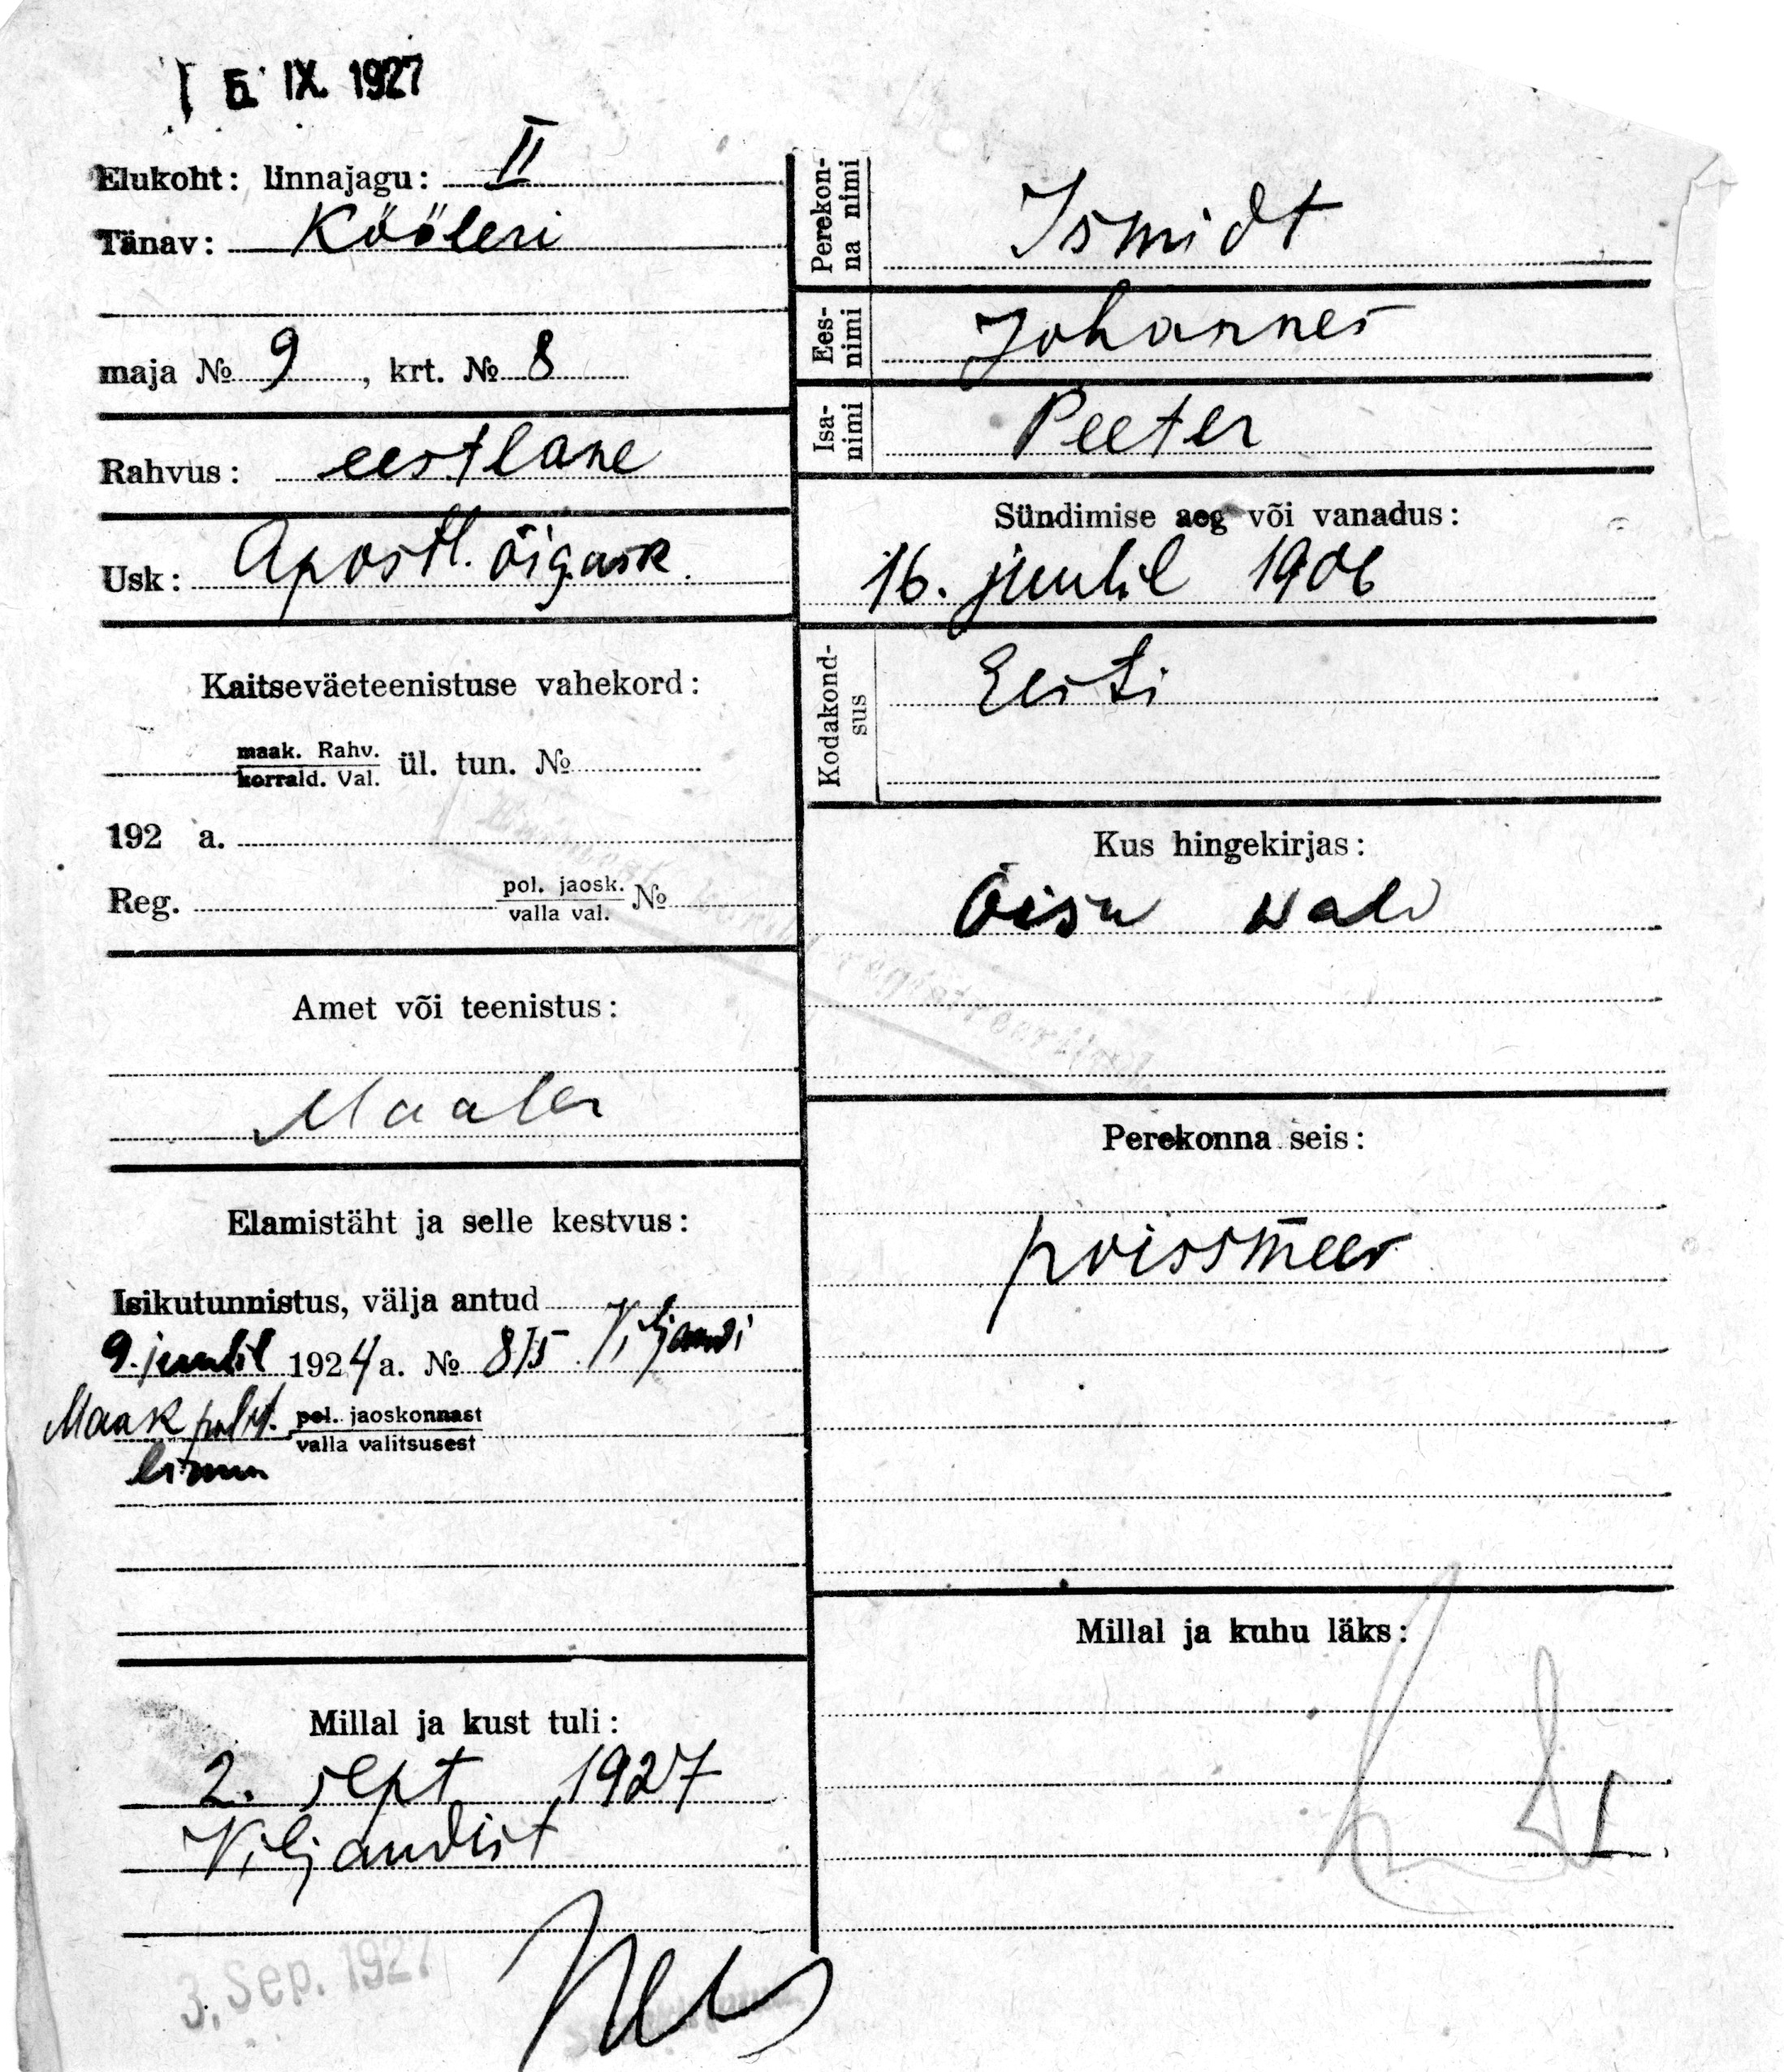 5. IX. 1927
Elukoht: linnajagu: II
Tänav: Kööleri
maja № 9, krt. № 8
Rahvus: eestlane
Usk: Apostl. õigeusk.
Kaitseväeteenistuse vahekord:
maak. Rahv.
korrald. Val. ül. tun. №
192 a.
Reg. pol. jaosk. №
valla val.
Amet või teenistus:
Maaler
Elamistäht ja selle kestvus:
Isikutunnistus, välja antud
9. juulil 1924 a. № 875 Viljandi
Maak polit. pol. jaoskonnast
valla valitsusest
Millal ja kust tuli:
2. sept 1927
Viljandist
3. Sep. 1927
Perekon-
na nimi
Ismidt
Ees-
nimi
Johannes
Isa-
nimi
Peeter
Sündimise aeg või vanadus:
16. juulil 1906
Kodakond-
sus
Eesti
Kus hingekirjas:
Õisu vald
Perekonna seis:
poissmees
Millal ja kuhu läks: